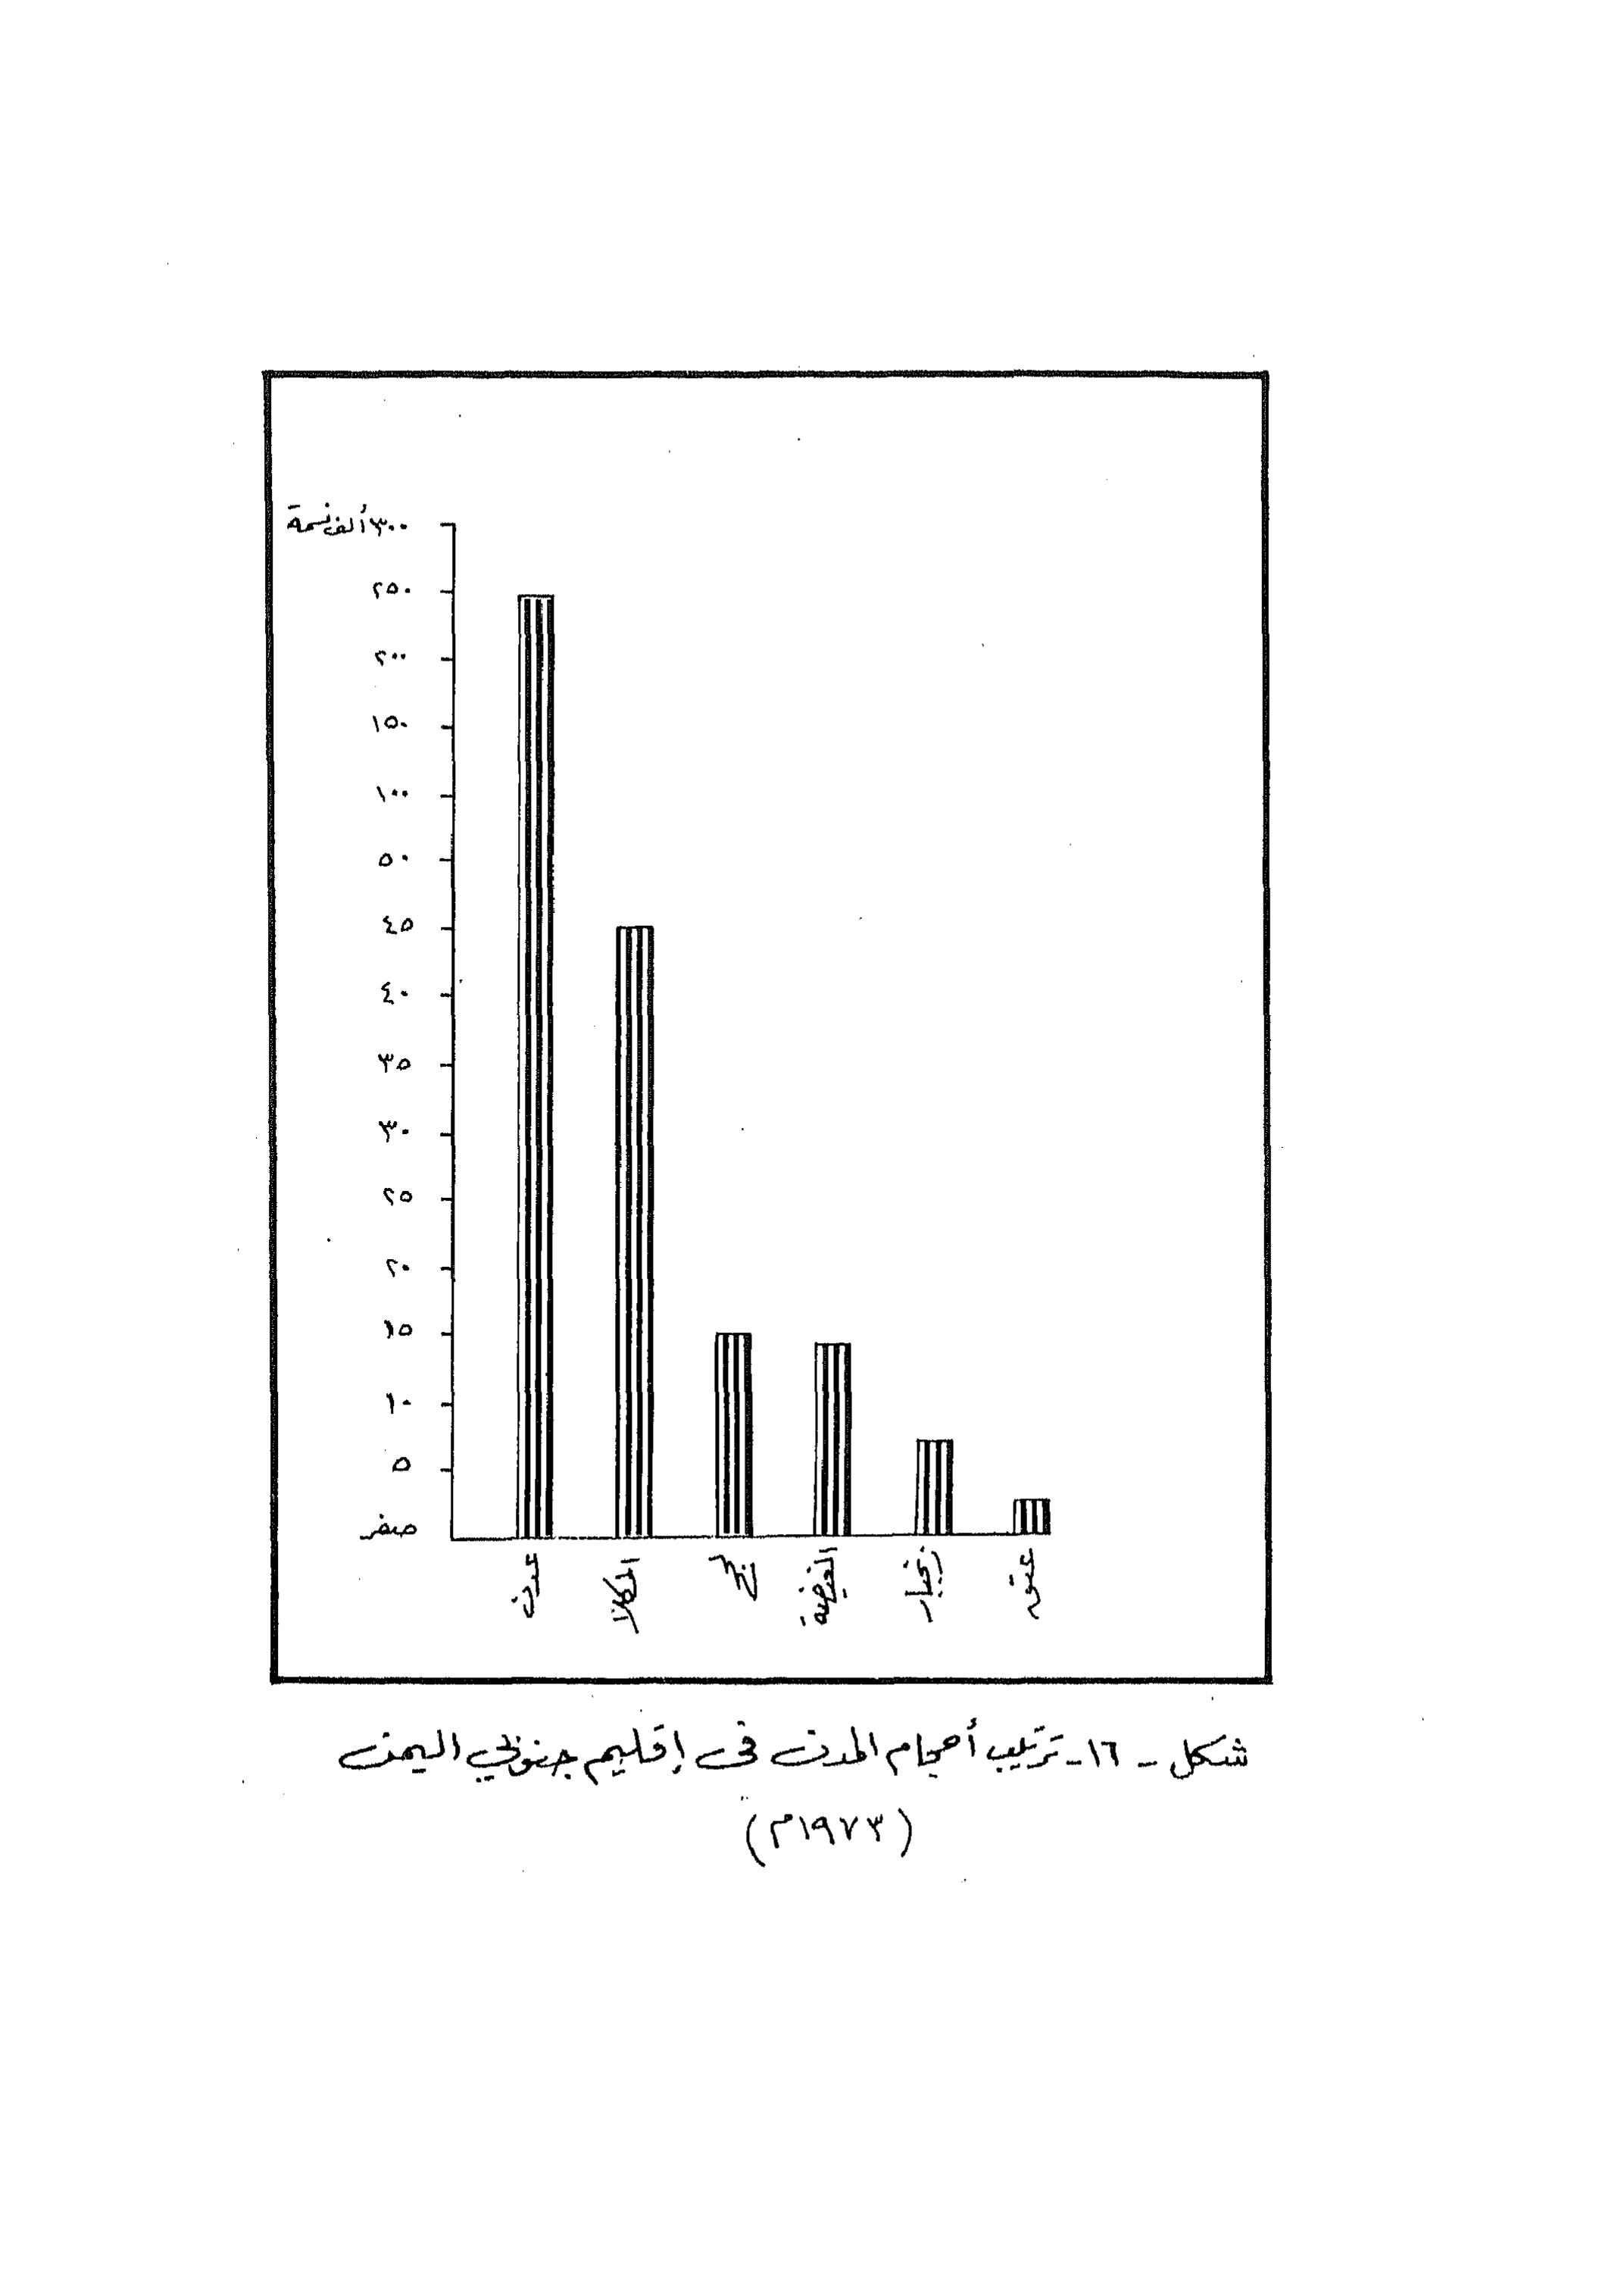 ٣٠٠ ألف نسمة
٢٥٠
٢٠٠
١٥٠
١٠٠
٥٠
٤٥
٤٠
٣٥
٣٠
٢٥
٢٠
١٥
١٠
٥
صفر
عدن
المكلا
لحج
الغيضة
زنجبار
عتق
شكل - ١٦ - ترتيب أحجام المدن في إقليم جنوبي اليمن
(١٩٧٣م)